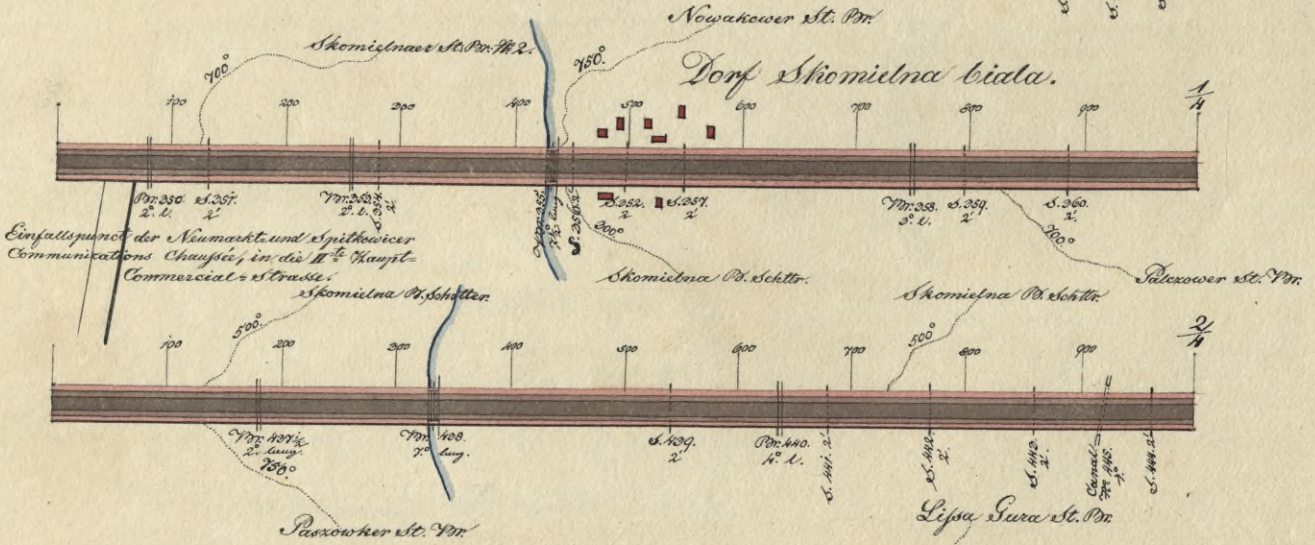 Nowakower St. Br.
Skomielnaer St. Br. № 2.
700°
750°
Dorf Skomielna biala.
1/4
100 200 300 400 500 600 700 800 900
Br. 350. 2° l.
S. 351. 2'
S. 354. 2'
Br. 355.
S. 352. 2'
S. 357. 2'
Br. 358. 3° l.
S. 359. 2'
S. 360. 2'
300°
700°
Einfallspunct der Neumarkt und Spitkowicer
Communications Chaussée, in die II te Haupt=
Commercial=Strasse.
Skomielna B. Schttr.
Palczower St. Br.
Skomielna B. Schotter.
Skomielna B. Schttr.
500°
500°
2/4
100 200 300 400 500 600 700 800 900
Br. 437 1/2 2° lang.
Br. 438. 7° lang.
S. 439. 2'
Br. 440. 4° l.
S. 441. 2'
S. 442. 2'
S. 443. 2'
Canal № 445. 1°
S. 444. 2'
750°
Paszowker St. Br.
Lissa Gura St. Br.